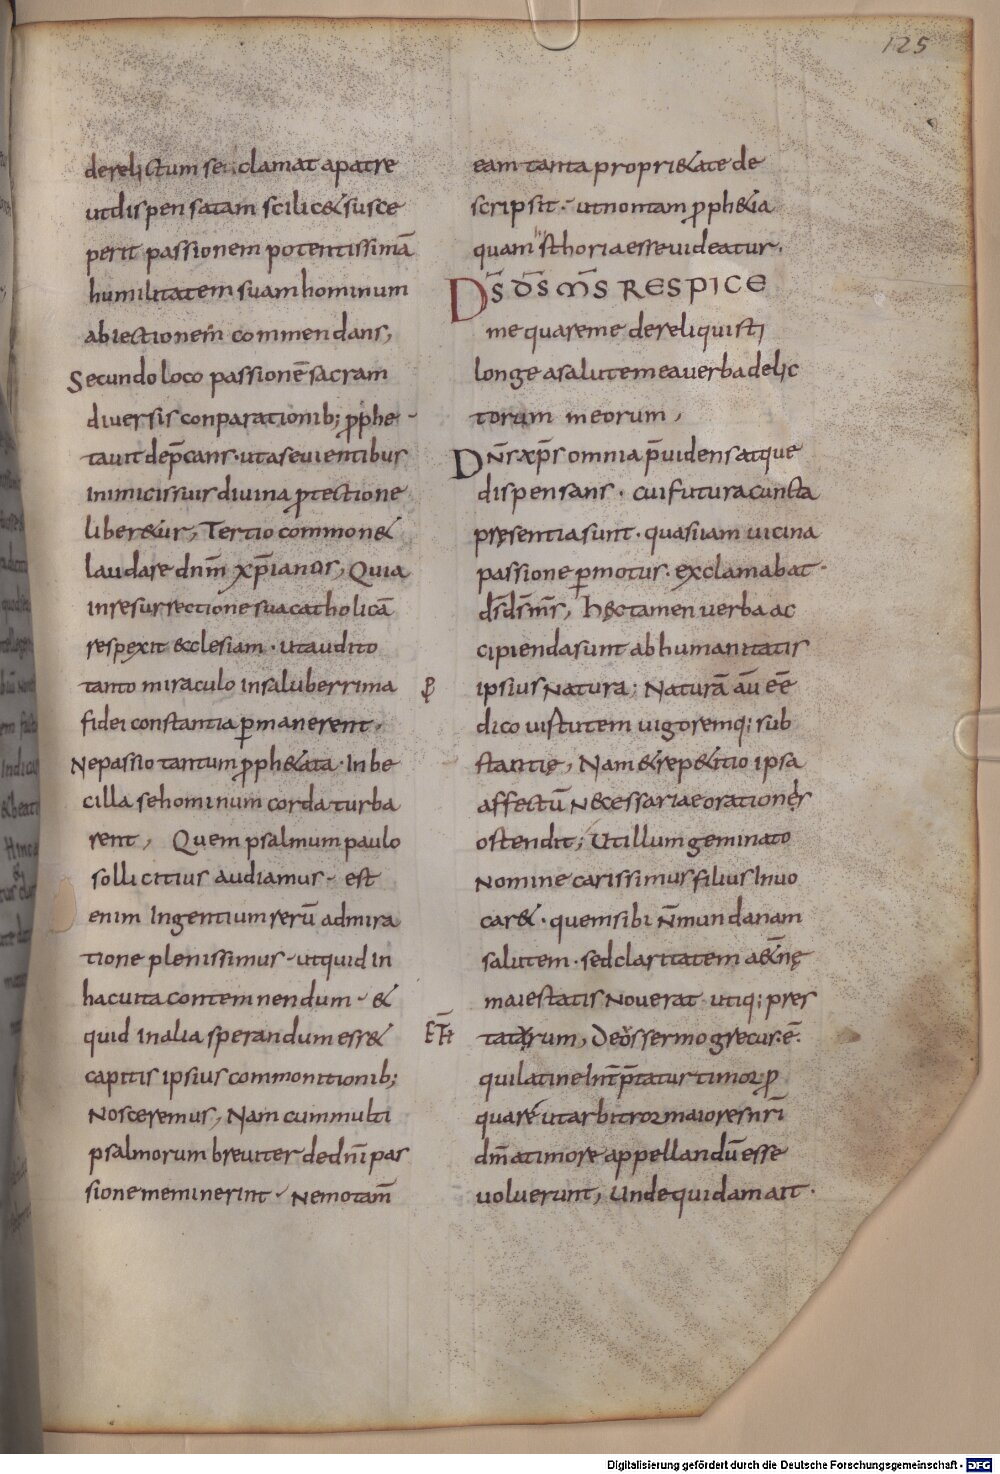 125
derelictum se clamat apatre
utdispensatam scilic&susce
perit passionem potentissimā
humilitatem suam hominum
abiectionem commendans;
Secundo loco passionē sacram
diversis conparationib; ꝓphe-
tavit dep̄cans· utasevientibus
inimicis suis divina ꝓtectione
liber&ur; Tertio common&
laudare dn̄m xp̄ianos; Quia
inresurrectione sua catholicā
respexit &cclesiam· utaudito
tanto miraculo insaluberrima
fidei constantia ꝑmanerent,
Nepassio tantum ꝓph&ata· Inbe
cilla sehominum corda turba
rent, Quem psalmum paulo
sollicitius audiamus- est
enim Ingentium rerū admira
tione plenissimus- utquid in
hac vita contemnendum- &
quid inalia sperandum ess&
capitis ipsius commonitionib;
Nosceremus, Nam cummulti
psalmorum breviter dedn̄i pas
sione meminerint- Nemo tam̄
eam tanta propri&ate de
scripsit- utnontam ꝓph&ia
quam hsthoria esse videatur.
Ds̄ ds̄ ms̄ RESPICE
me quareme dereliquisti
longe asalutemea verba delic
torum meorum,
Dn̄s xp̄s omnia p̄videns atque
dispensans· cui futura cuncta
pręsentia sunt· quasi iam vicina
passione ꝑmotus· exclamabat·
ds̄ ds̄ ms̄, hęc tamen verba ac
cipienda sunt abhumanitatis
ipsius Natura; Naturā aū eē̄
dico virtutem vigoremq; sub
stantię, Nam &rep&itio ipsa
affectū N&cessariae orationis
ostendit; Utillum geminato
Nomine carissimus filius Invo
car&· quem sibi n̄mundanam
salutem· sed claritatem a&n̄ę
maiestatis Noverat utiq; pres
tatarum, Deos sermo grecus· ē·
qui latine Int̄p̄tatur timor ꝓ
quare utarbitror maiores nr̄i
dm̄ atimore appellandū esse
voluerunt, Unde quidam ait·
Digitalisierung gefördert durch die Deutsche Forschungsgemeinschaft - DFG